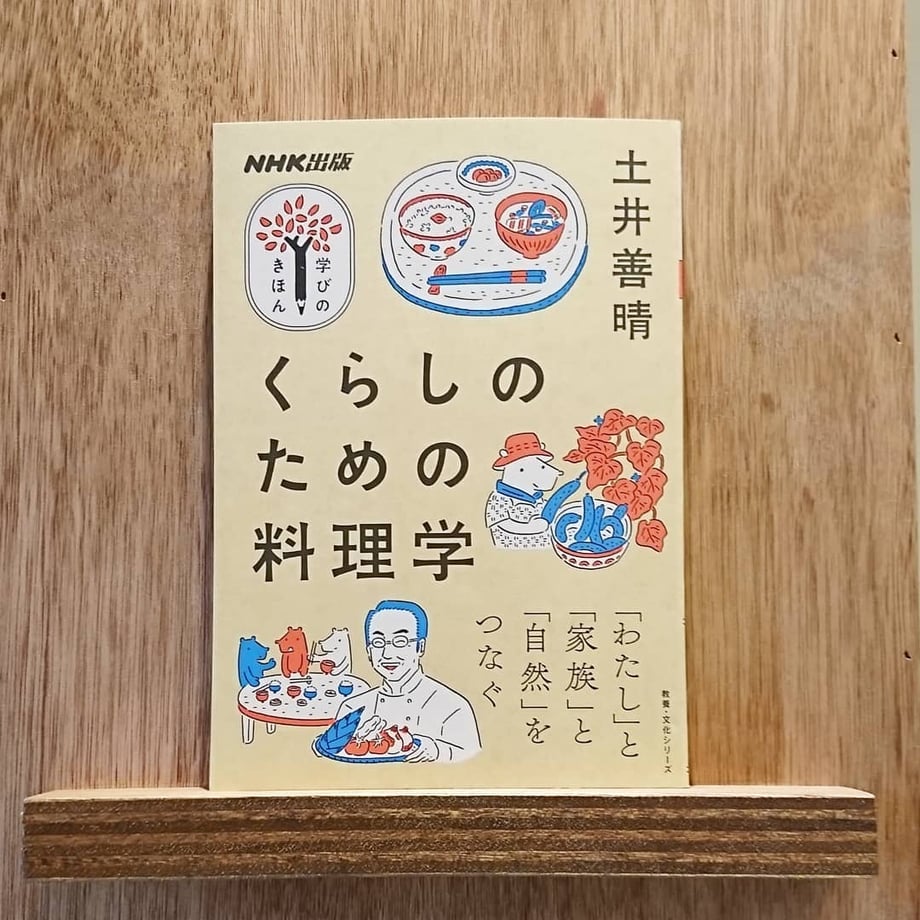 NHK出版
学びの
きほん
土井善晴
くらしの
ための
料理学
「わたし」と
「家族」と
「自然」を
つなぐ
教養・文化シリーズ